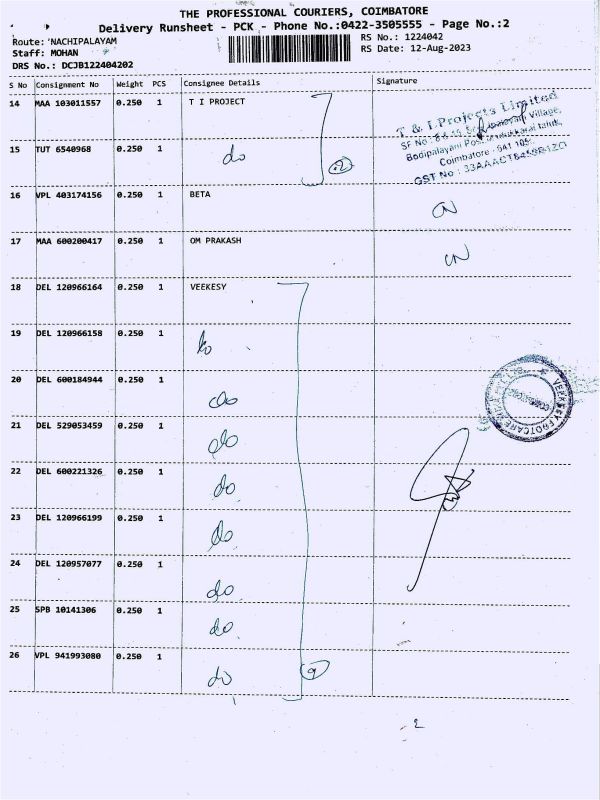 THE PROFESSIONAL COURIERS, COIMBATORE
Delivery Runsheet - PCK - Phone No.:0422-3505555 - Page No.:2
Route: NACHIPALAYAM
Staff: MOHAN
DRS No.: DCJB122404202
RS No.: 1224042
RS Date: 12-Aug-2023
S No Consignment No Weight PCS Consignee Details Signature
14 MAA 103011557 0.250 1 T I PROJECT
T & I Projects Limited
Village,
Bodipalayam Post,
Coimbatore - 641 105.
15 TUT 6540968 0.250 1 do
2
GST No :
16 VPL 403174156 0.250 1 BETA
17 MAA 600200417 0.250 1 OM PRAKASH
18 DEL 120966164 0.250 1 VEEKESY
19 DEL 120966158 0.250 1 do
20 DEL 600184944 0.250 1 do
VEEKESY FOOTCARE
21 DEL 529053459 0.250 1 do
22 DEL 600221326 0.250 1 do
23 DEL 120966199 0.250 1 do
24 DEL 120957077 0.250 1 do
25 SPB 10141306 0.250 1 do
26 VPL 941993080 0.250 1 do
9
2